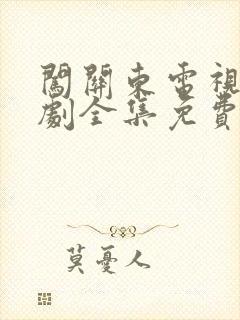 闖關東電視
劇全集免費
莫憂人